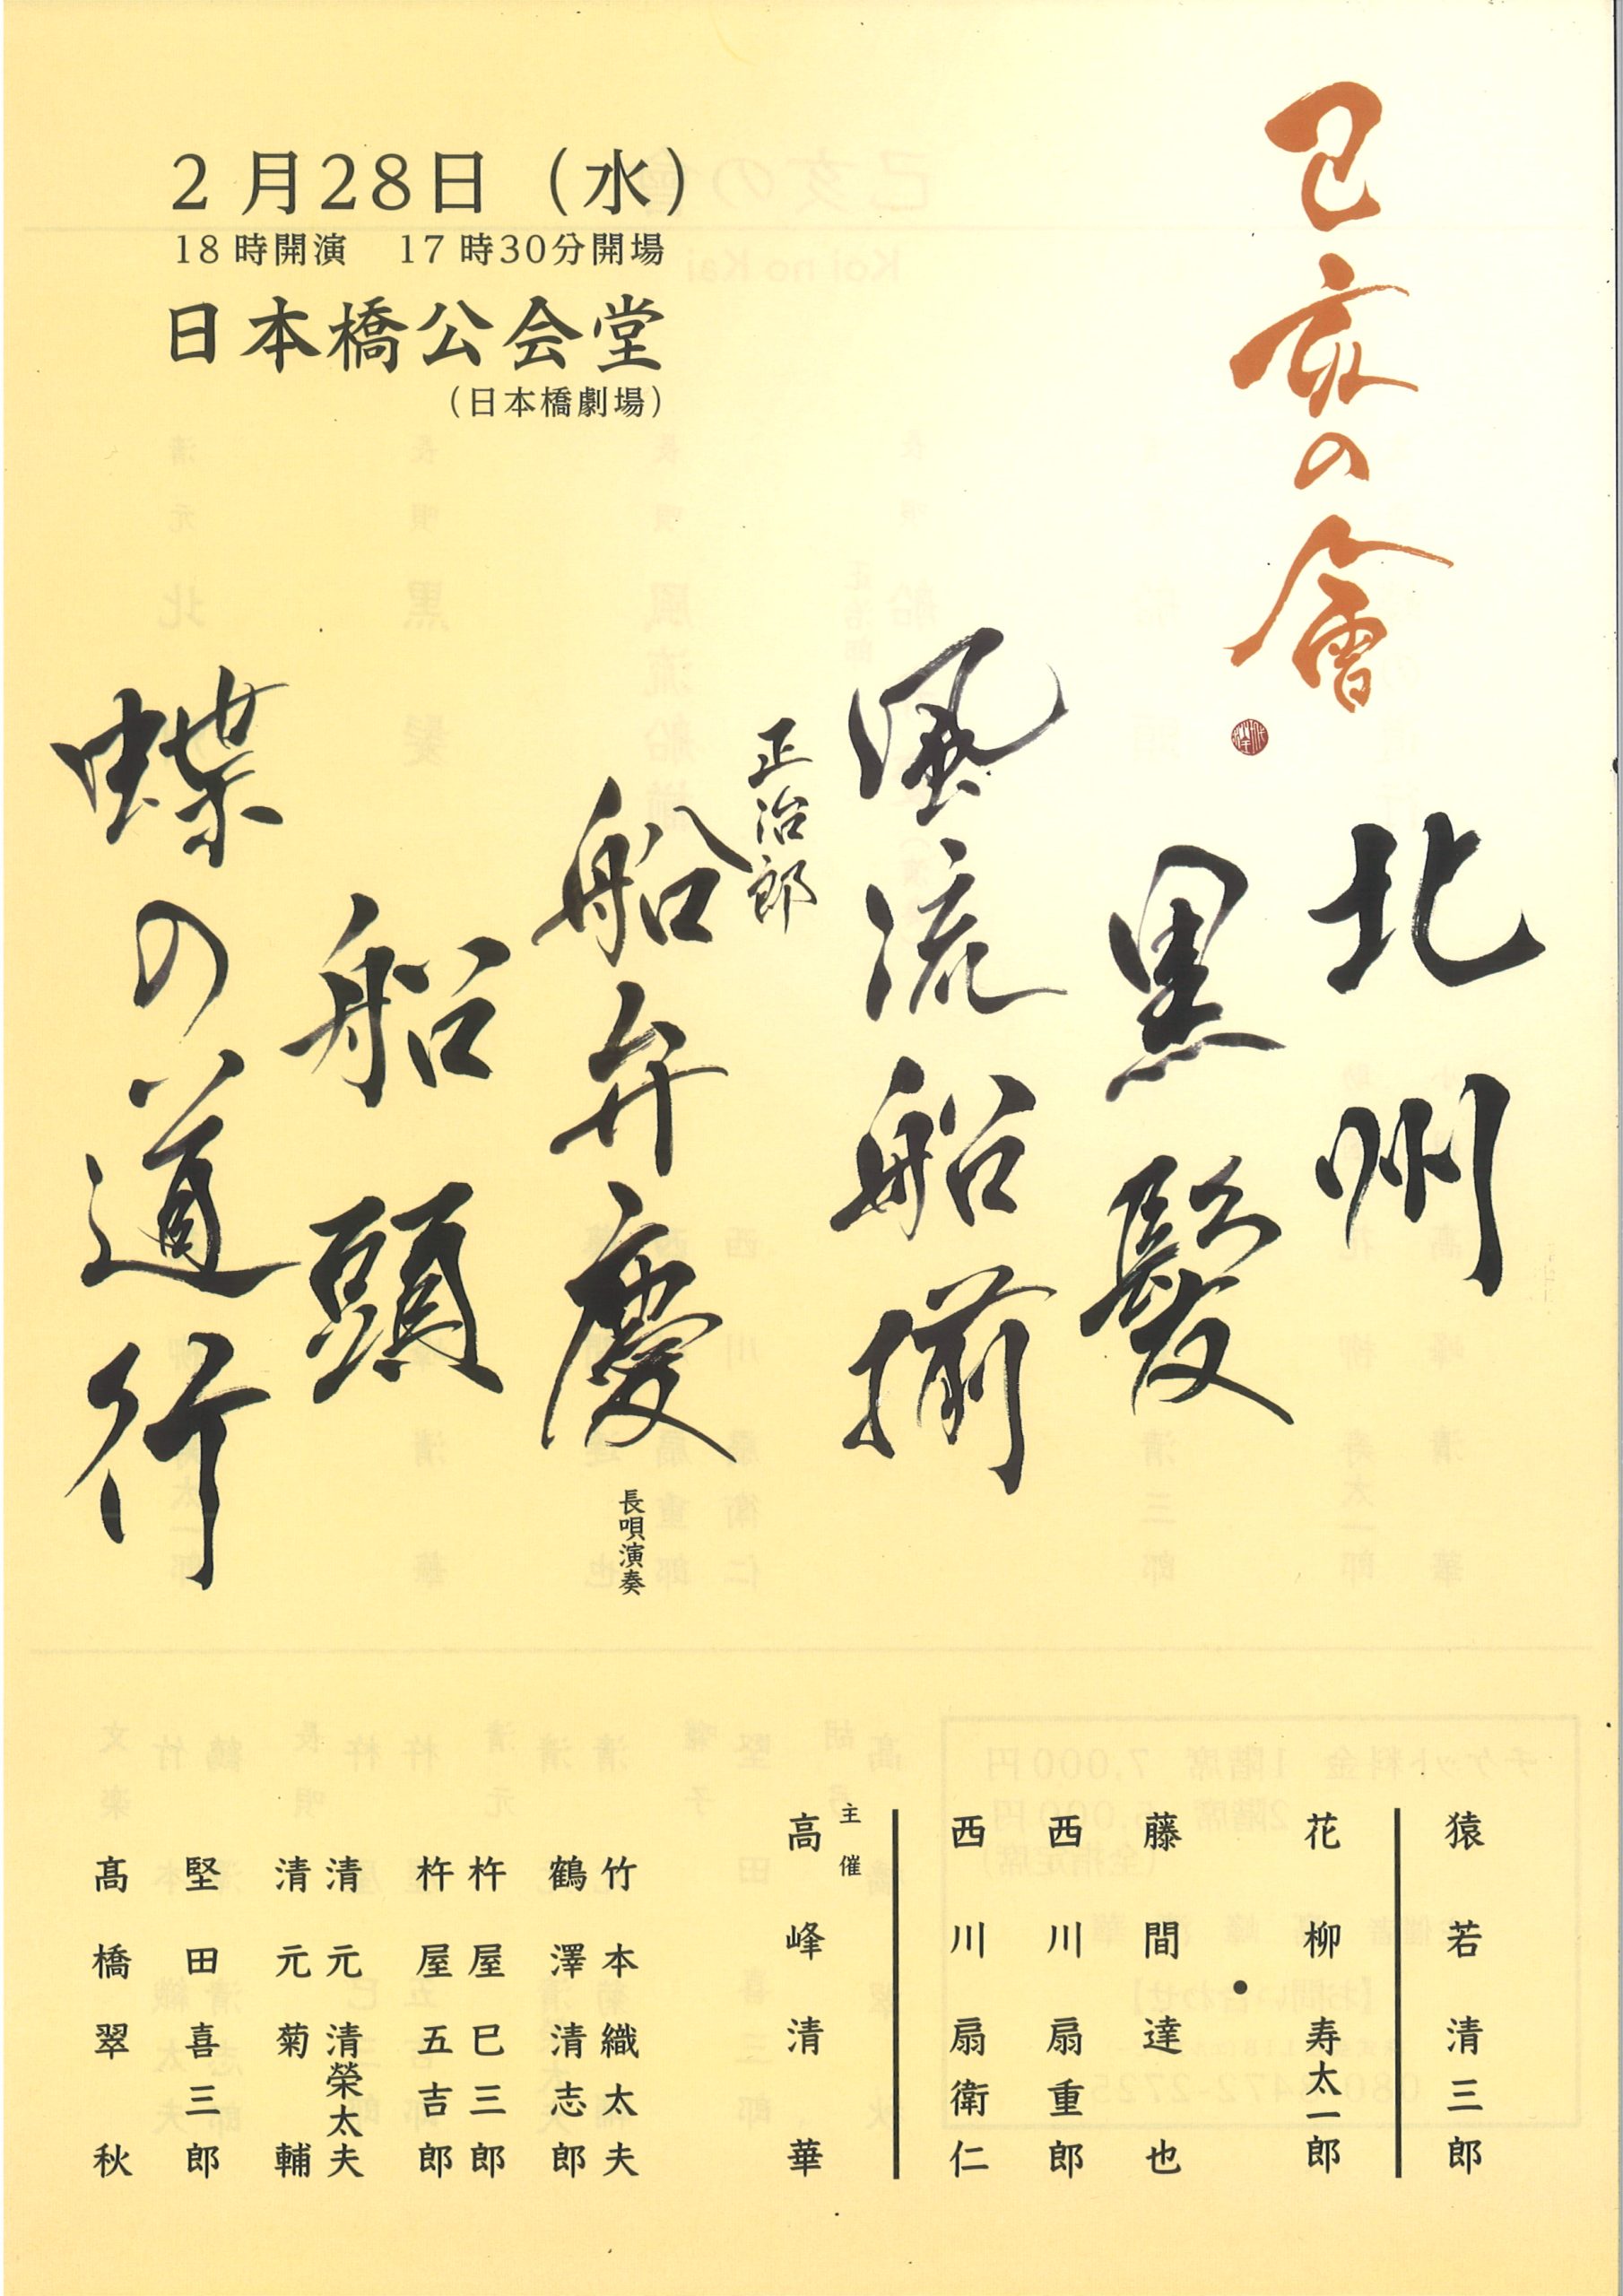 己亥の會
2月28日（水）
18時開演　17時30分開場
日本橋公会堂
（日本橋劇場）
北州
黒髪
風流船揃
正治郎
船弁慶
長唄演奏
船頭
蝶の道行
猿若清三郎
花柳寿太一郎
藤間達也
西川扇重郎
西川扇衛仁
主催
高峰清華
竹本織太夫
鶴澤清志郎
杵屋巳三郎
杵屋五吉郎
清元清榮太夫
清元菊輔
堅田喜三郎
髙橋翠秋